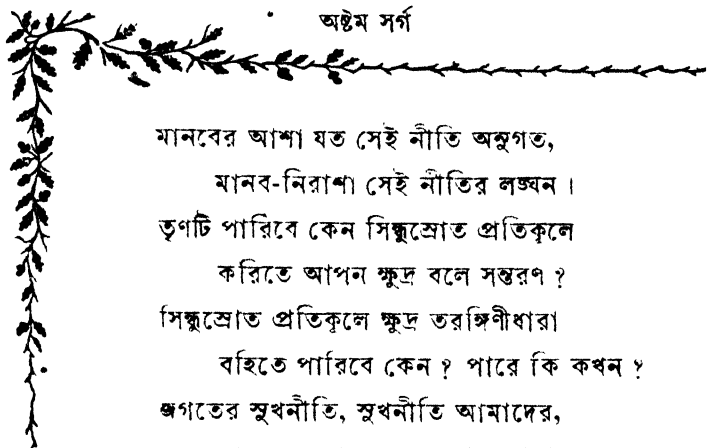 অষ্টম সর্গ
মানবের আশা যত সেই নীতি অনুগত,
মানব-নিরাশা সেই নীতির লঙ্ঘন ।
তৃণটি পারিবে কেন সিন্ধুস্রোত প্রতিকূলে
করিতে আপন ক্ষুদ্র বলে সন্তরণ ?
সিন্ধুস্রোত প্রতিকূলে ক্ষুদ্র তরঙ্গিণীধারা
বহিতে পারিবে কেন ? পারে কি কখন ?
জগতের সুখনীতি, সুখনীতি আমাদের,